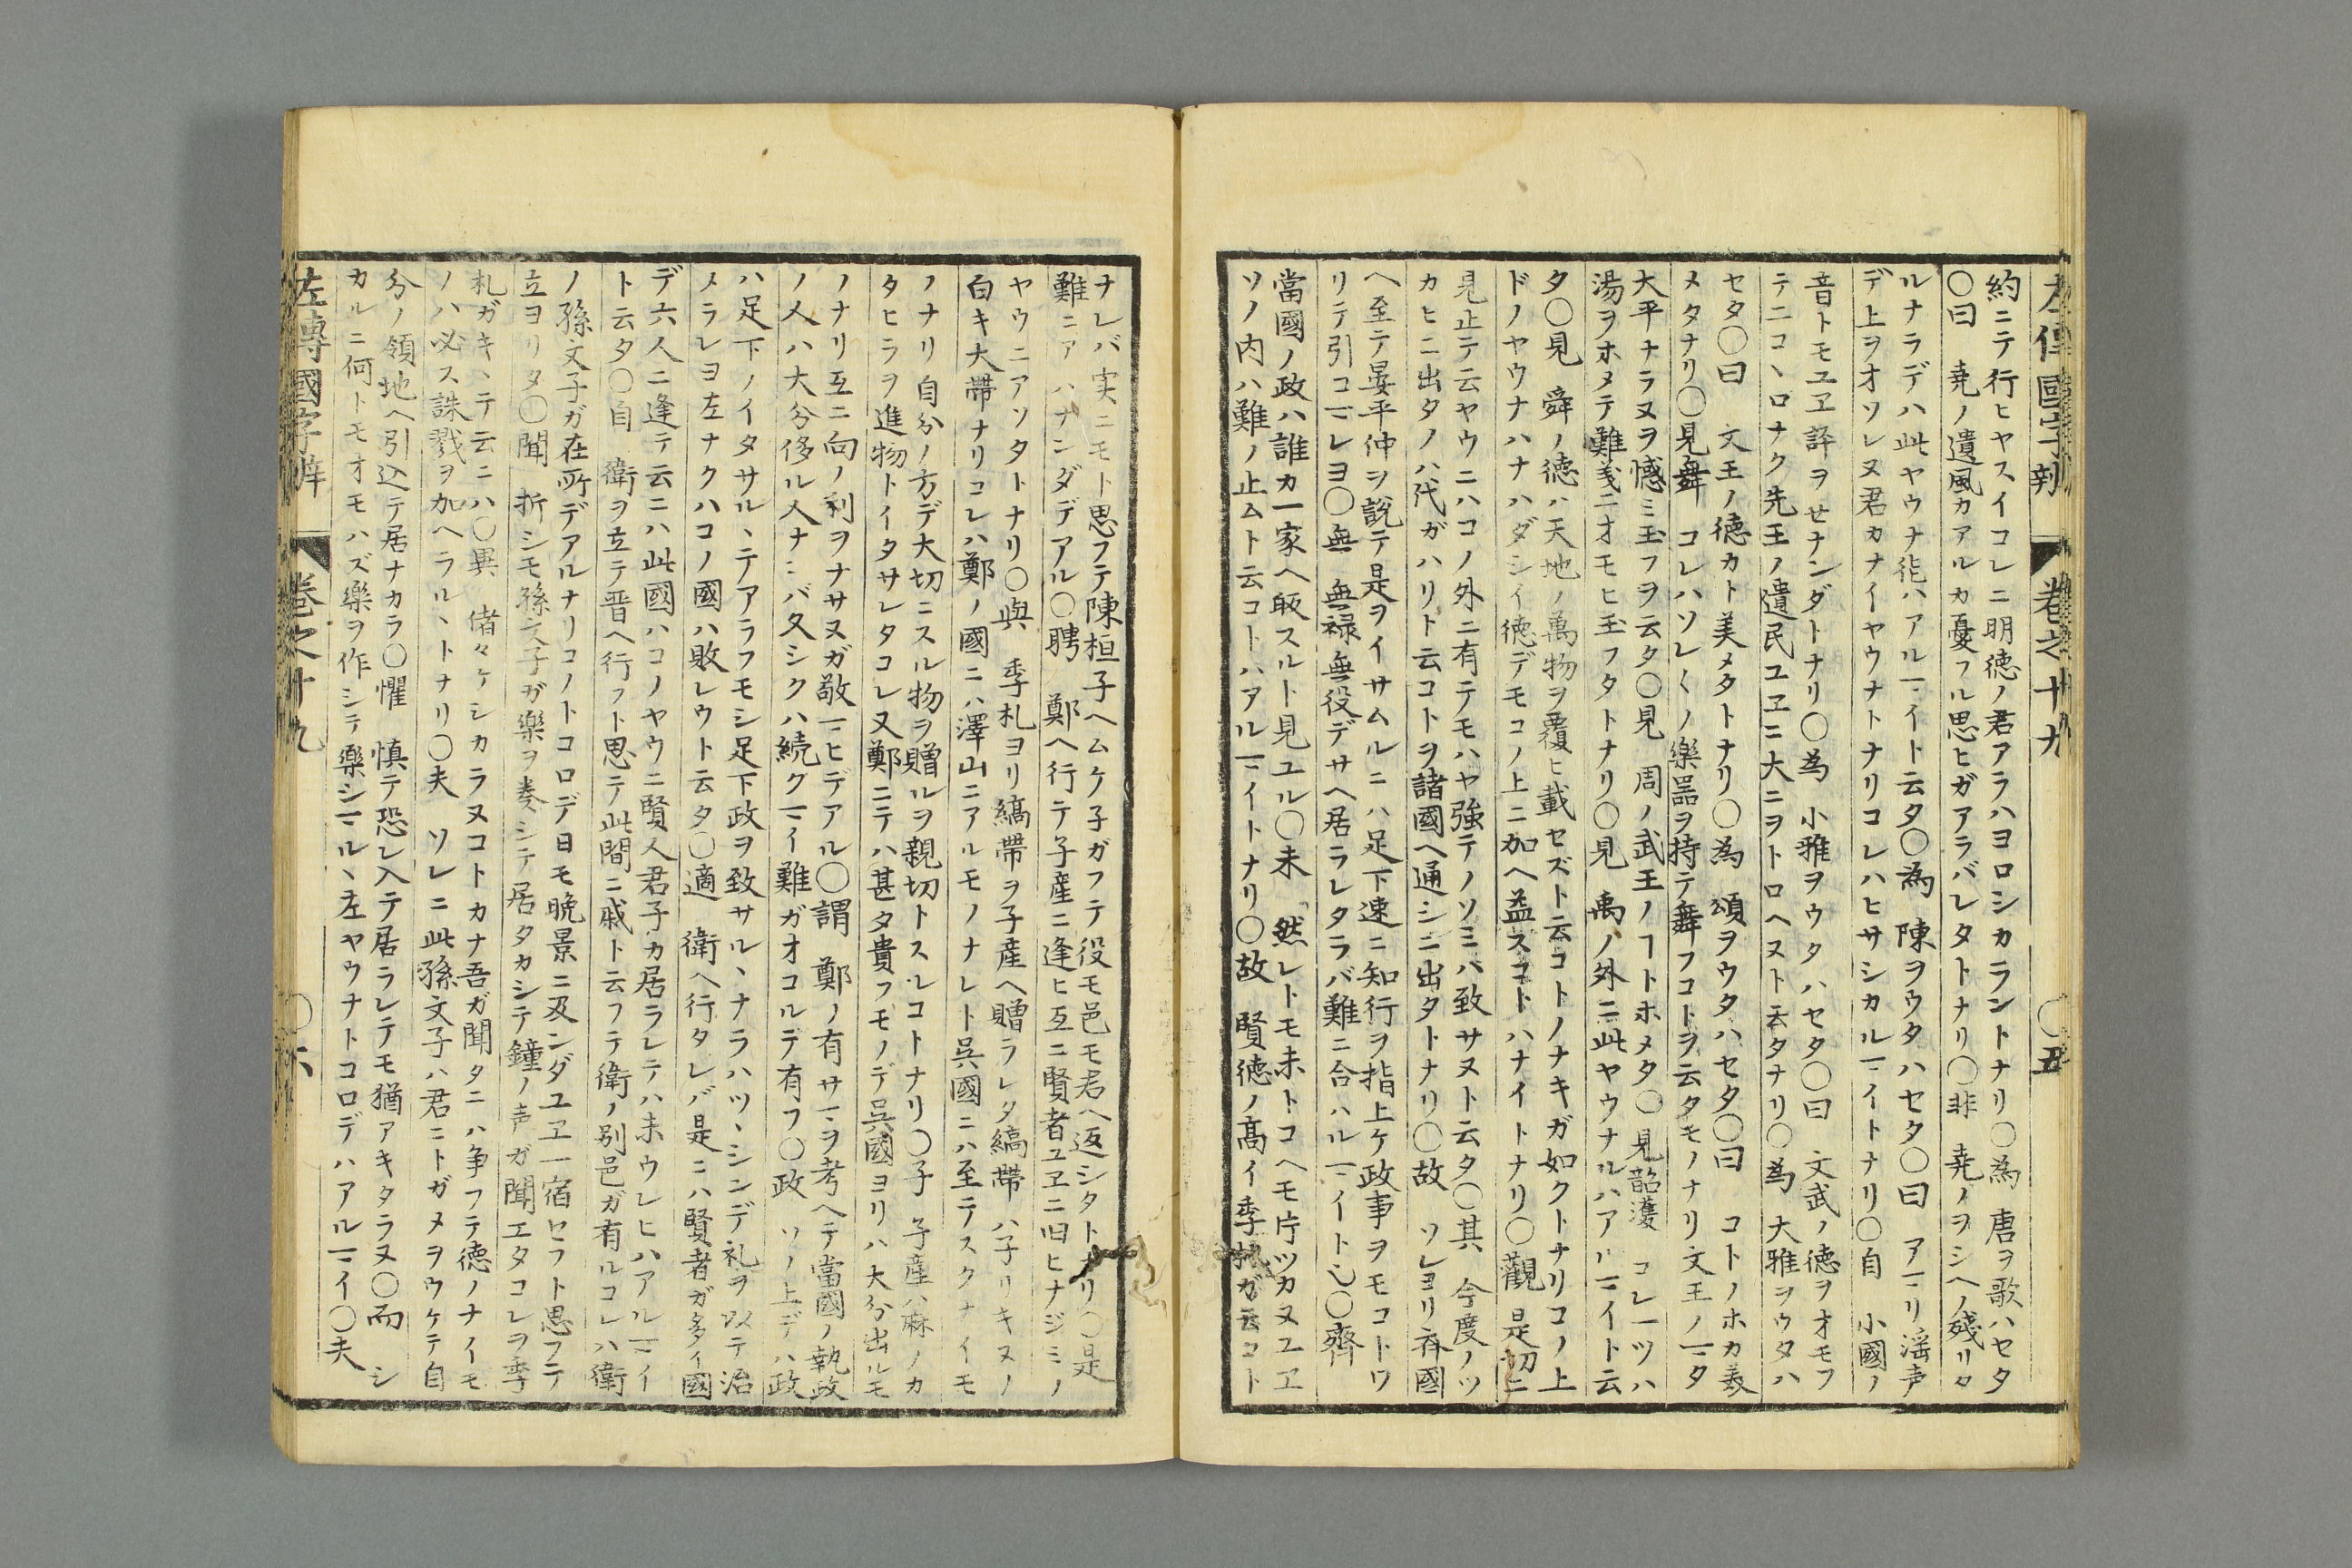 左傳國字辨 卷之十九 〇五
約ニテ行ヒヤスイコレニ明徳ノ君アラハヨロシカラントナリ〇為 唐ヲ歌ハセタ
〇曰 堯ノ遺風カアルカ憂フル思ヒガアラバレタトナリ〇非 堯ノヲシヘノ殘リタ
ルナラデハ此ヤウナ徳ハアルマイト云タ〇為 陳ヲウタハセタ〇曰 アマリ淫声
デ上ヲオソレヌ君カナイヤウナトナリコレハヒサシカルマイトナリ〇自 小國ノ
音トモユヱ評ヲセナンダトナリ〇為 小雅ヲウタハセタ〇曰 文武ノ徳ヲオモフ
テ二コヽロナク先王ノ遺民ユヱニ大ニヲトロヘヌト云タナリ〇為 大雅ヲウタハ
セタ〇曰 文王ノ徳カト美メタトナリ〇為 頌ヲウタハセタ〇曰 コトノホカ義
メタナリ〇見舞 コレハソレ〱ノ樂噐ヲ持テ舞フコトヲ云タモノナリ文王ノマタ
大平ナラヌヲ憾ミ玉フヲ云タ〇見 周ノ武王ノヿトホメタ〇見韶濩 コレ一ツハ
湯ヲホメテ難義ニオモヒ玉フタトナリ〇見 禹ノ外ニ此ヤウナルハアルマイト云
タ〇見 舜ノ徳ハ天地ノ萬物ヲ覆ヒ載セズト云コトノナキガ如クトナリコノ上
ドノヤウナハナハダシイ徳デモコノ上ニ加ヘ益スコトハナイトナリ〇觀 是切ニ
見止テ云ヤウニハコノ外ニ有テモハヤ強テノソミバ致サヌト云タ〇其 今度ノツ
カヒニ出タノハ代ガハリト云コトヲ諸國ヘ通シニ出タトナリ〇故 ソレヨリ斉國
ヘ至テ晏平仲ヲ說テ是ヲイサムルニハ足下速ニ知行ヲ指上ケ政事ヲモコトワ
リテ引コマレヨ〇無 無禄無役デサヘ居ラレタラバ難ニ合ハルマイト也〇齊
當國ノ政ハ誰カ一家ヘ皈スルト見ユル〇未 然レトモ未トコヘモ片ツカヌユヱ
ソノ内ハ難ノ止ムト云コトハアルマイトナリ〇故 賢徳ノ高イ季札ガ云コト
ナレバ実ニモト思フテ陳桓子ヘムケ子ガフテ役モ邑モ君ヘ返シタトナリ〇是
難ニアハナンダデアル〇聘 鄭ヘ行テ子産ニ逢ヒ互ニ賢者ユヱニ旧ヒナジミノ
ヤウニアソタトナリ〇與 季札ヨリ縞帶ヲ子産ヘ贈ラレタ縞帶ハ子リキヌノ
白キ大帶ナリコレハ鄭ノ國ニハ澤山ニアルモノナレト呉國ニハ至テスクナイモ
ノナリ自分ノ方デ大切ニスル物ヲ贈ルヲ親切トスルコトナリ〇子 子産ハ麻ノカ
タヒラヲ進物トイタサレタコレ又鄭ニテハ甚タ貴フモノデ呉國ヨリハ大分出ルモ
ノナリ互ニ向ノ利ヲナサヌガ敬マヒデアル〇謂 鄭ノ有サマヲ考ヘテ當國ノ執政
ノ人ハ大分侈ル人ナレバ久シクハ続クマイ難ガオコルデ有フ〇政 ソノ上デハ政
ハ足下ノイタサルヽテアラフモシ足下政ヲ致サルヽナラハツヽシンデ礼ヲ以テ治
メラレヨ左ナクハコノ國ハ敗レウト云タ〇適 衛ヘ行タレバ是ニハ賢者ガ多イ國
デ六人ニ逢テ云ニハ此國ハコノヤウニ賢人君子カ居ラレテハ未ウレヒハアルマイ
ト云タ〇自 衛ヲ立テ晋ヘ行フト思テ此間ニ戚ト云フテ衛ノ别邑ガ有ルコレハ衛
ノ孫文子ガ在所デアルナリコノトコロデ日モ晩景ニ及ンダユヱ一宿セフト思フテ
立ヨリタ〇聞 折シモ孫文子ガ樂ヲ奏シテ居タカシテ鐘ノ声ガ聞エタコレヲ季
札ガキヽテ云ニハ〇異 偖々ケシカラヌコトカナ吾ガ聞タニハ争フテ徳ノナイモ
ノハ必ス誅戮ヲ加ヘラルヽトナリ〇夫 ソレニ此孫文子ハ君ニトガメヲウケテ自
分ノ領地ヘ引込テ居ナカラ〇懼 慎テ恐レ入テ居ラレテモ猶アキタラヌ〇而 シ
カルニ何トモオモハズ樂ヲ作シテ樂シマルヽ左ヤウナトコロデハアルマイ〇夫
左傳國字辨 卷之十九 〇六